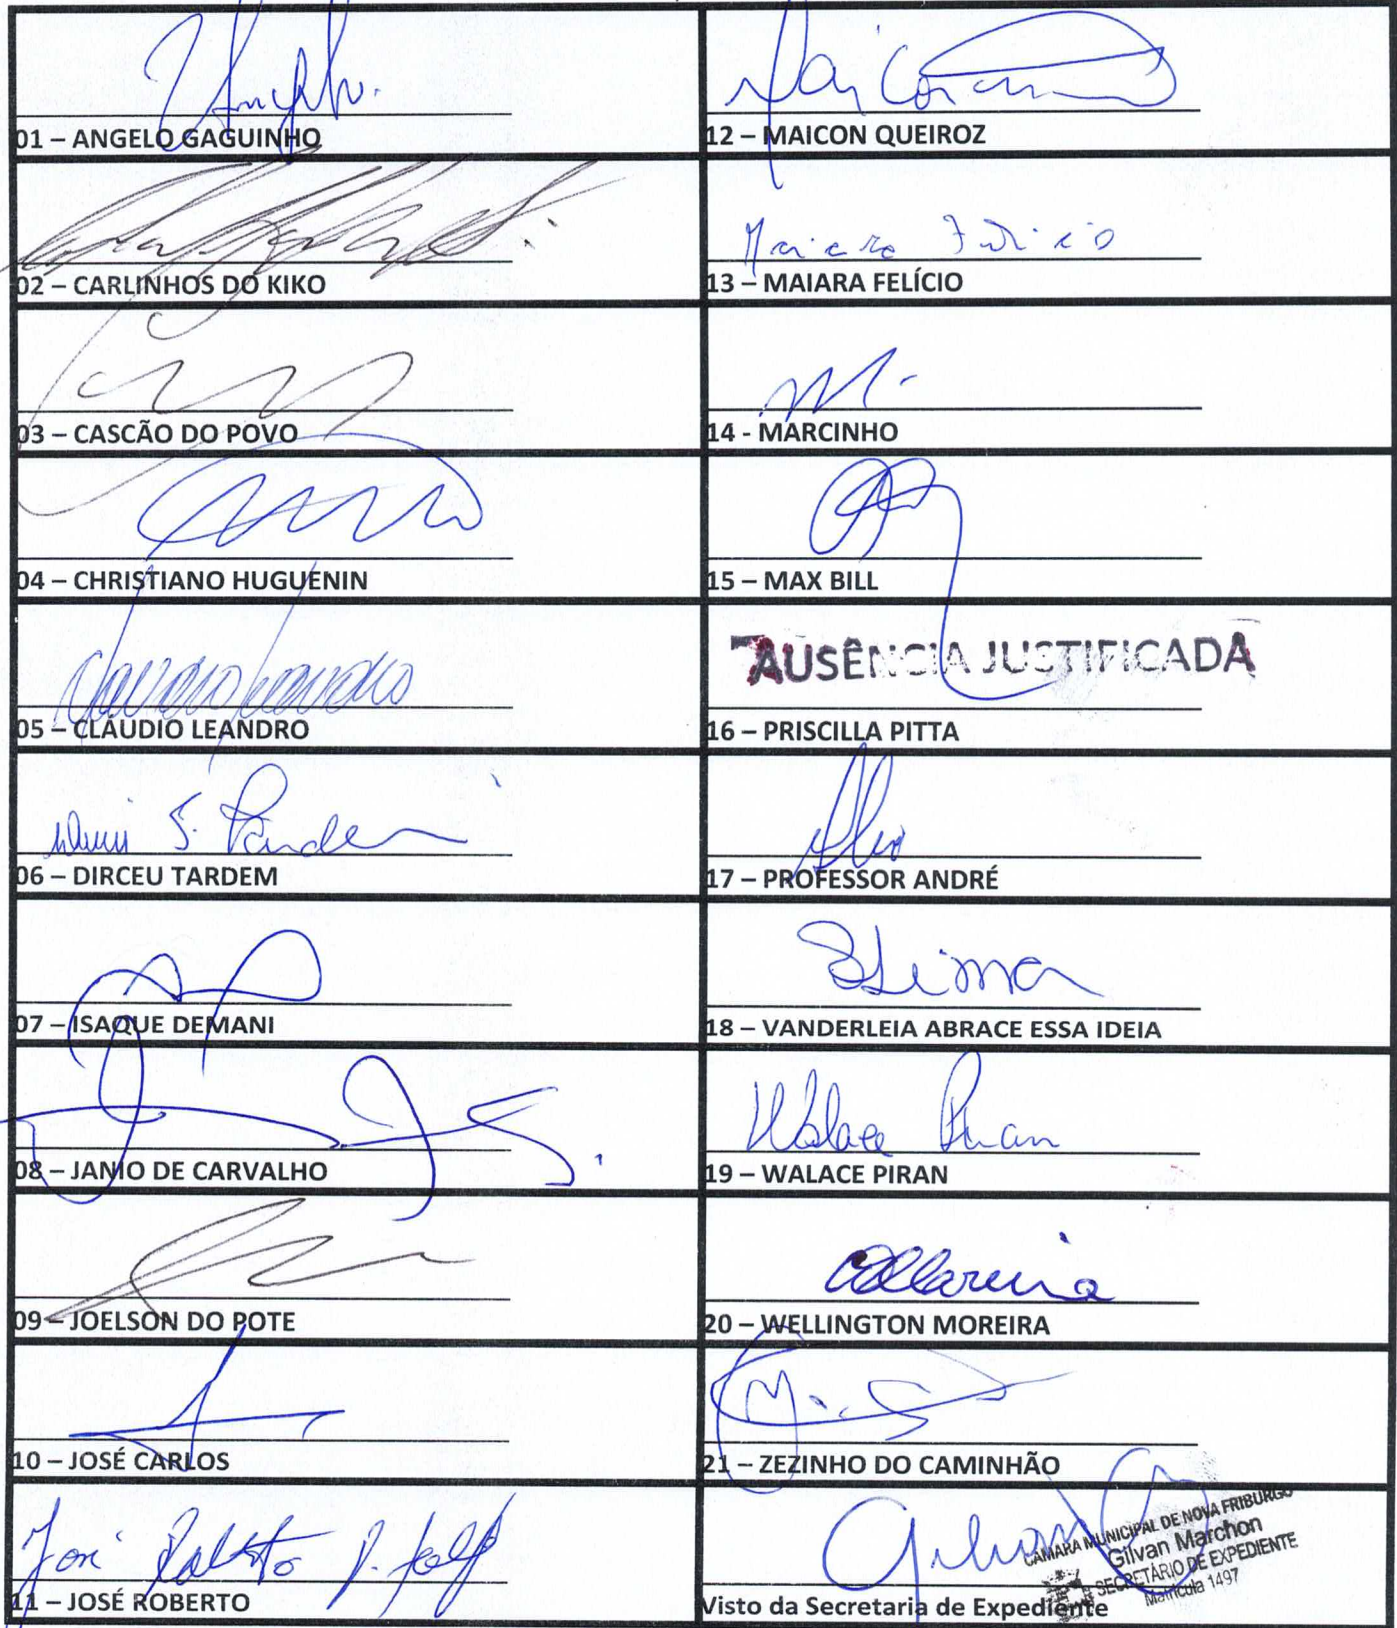 Angelo.
01 – ANGELO GAGUINHO
02 – CARLINHOS DO KIKO
03 – CASCÃO DO POVO
04 – CHRISTIANO HUGUENIN
Claudio Leandro
05 – CLAUDIO LEANDRO
06 – DIRCEU TARDEM
07 – ISAQUE DEMANI
08 – JANIO DE CARVALHO
09 – JOELSON DO POTE
10 – JOSÉ CARLOS
José Roberto
11 – JOSÉ ROBERTO
Maicon
12 – MAICON QUEIROZ
Maiara Felício
13 – MAIARA FELÍCIO
14 - MARCINHO
15 – MAX BILL
AUSÊNCIA JUSTIFICADA
16 – PRISCILLA PITTA
17 – PROFESSOR ANDRÉ
18 – VANDERLEIA ABRACE ESSA IDEIA
Walace Piran
19 – WALACE PIRAN
20 – WELLINGTON MOREIRA
21 – ZEZINHO DO CAMINHÃO
CÂMARA MUNICIPAL DE NOVA FRIBURGO
Gilvan Marchon
SECRETÁRIO DE EXPEDIENTE
Matrícula 1497
Visto da Secretaria de Expediente